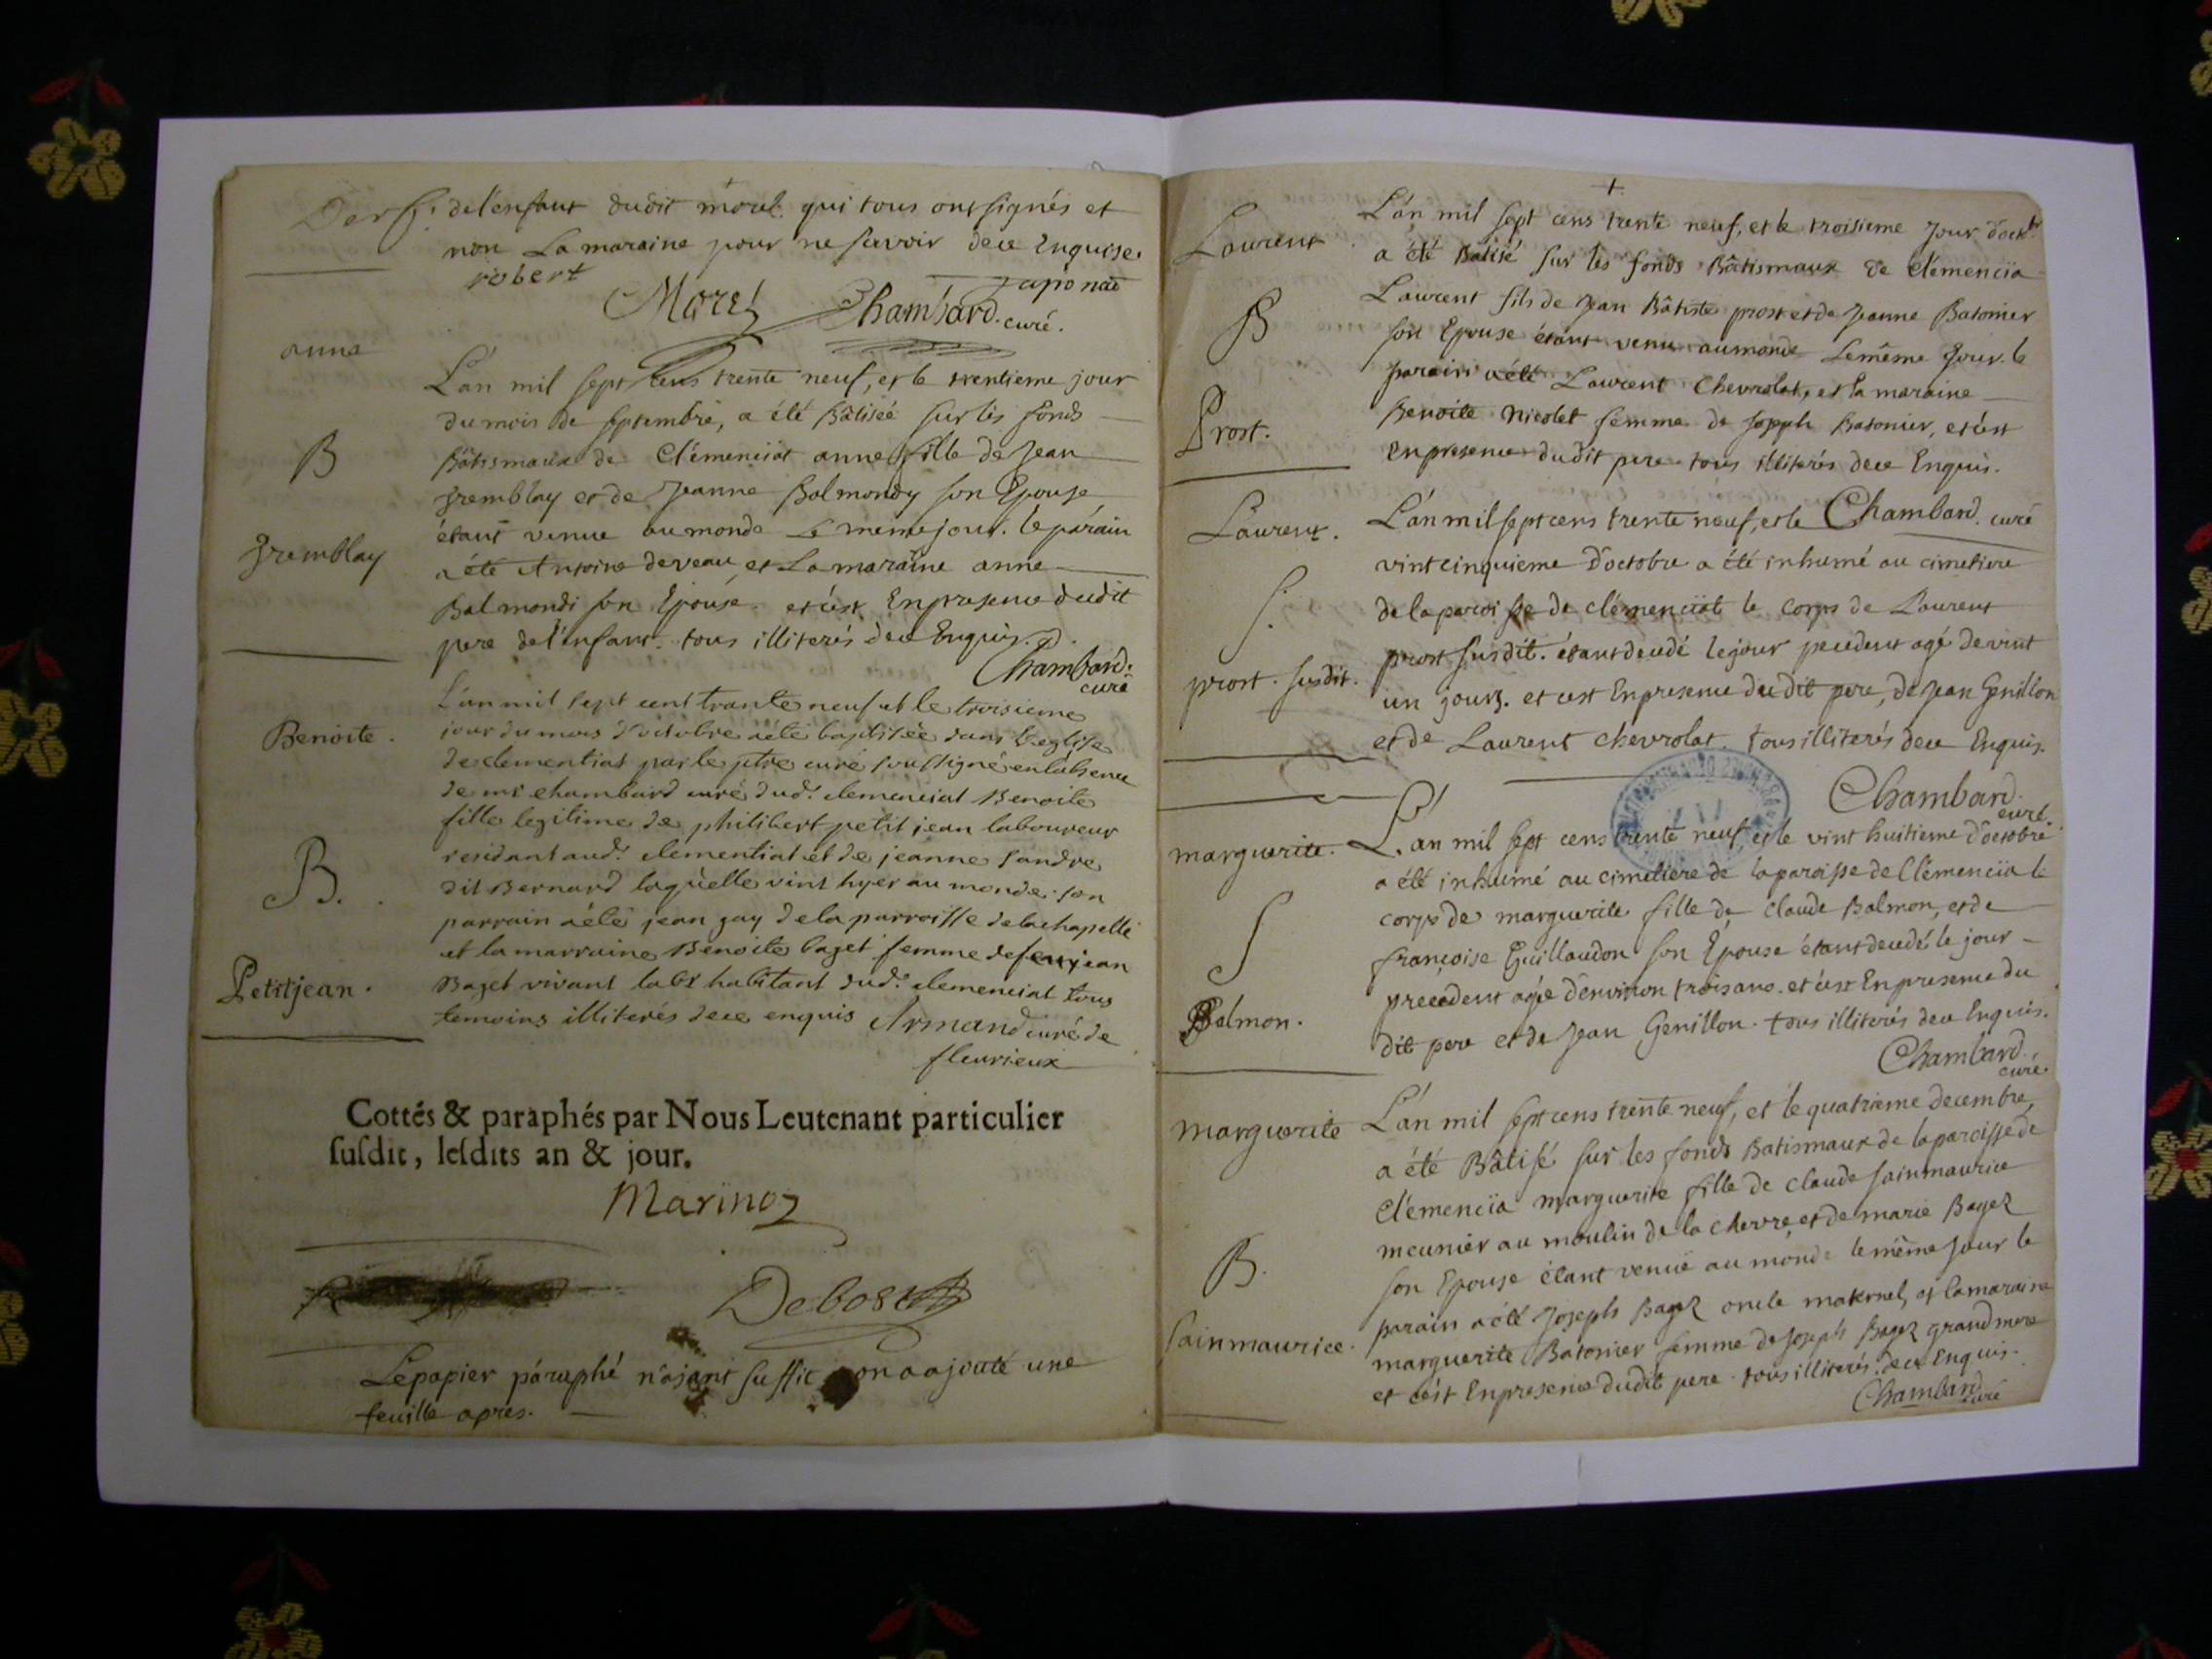 delenfant dudit morel. qui tous ont signés et
non La maraine pour ne savoir de ce Enquise.
robert
Morel Chambard. curé. japonad
anne
B
Tremblay
L'an mil sept cens trente neuf, et le trentieme jour
du mois de septembre, a été Bâtiseé sur les fonds
Bâtismaux de Clémenciat anne fille de Jean
Tremblay et de Jeanne Balmondy son Epouse
étant venue au monde Le meme jour. le parain
a été Antoine deveau et La maraine anne
Balmondi son Epouse et c'est En presence dudit
pere de l'enfant. tous illiterés de ce Enquis.
Chambard.
curé
Benoite.
B.
Petitjean.
L'an mil sept cent trante neuf et le troisieme
jour du mois d'octobre a été baptisée dans l'eglise
de clementiat par le ptre curé soussigné en l'absence
de mr chambard curé dud. clemenciat Benoite
fille legitime de philibert petit jean laboureur
residant aud. clementiat et de jeanne sandre
dit Bernard laquelle vint hyer au monde. son
parrain a été jean gay de la parroisse de la chapelle
et la marraine Benoite baget femme de feu jean
Baget vivant labr habitant dud. clemenciat tous
temoins illiterés de ce enquis Armand curé de
fleurieux
Cottés & paraphés par Nous Leutenant particulier
susdit, lesdits an & jour.
Marinoz
Debost
Le papier paraphé n'ajant suffit on a ajouté une
feuille apres.
Laurent
B
Prost.
L'an mil sept cens trente neuf, et le troisieme Jour d'octbr
a été Batisé sur les fonds Bâtismaux de clémencia
Laurent fils de Jean Bâtiste prost et de Jeanne Batonier
son Epouse étant venu au monde Le même Jour. le
parain a été Laurent Chevrolat, et la maraine
Benoite Nicolet femme de Joseph Batonier, et c'est
En presence dudit pere tous illiterés de ce Enquis.
Chambard. curé
Laurent.
S.
prost. susdit.
L'an mil sept cens trente neuf, et le
vint cinquieme D'octobre a été inhumé au cimetiere
de la paroisse de clémenciat le corps de Laurent
prost susdit. étant decedé le jour precedent agé de vint
un jours. et c'est En presence dudit pere, de Jean Genillon
et de Laurent chevrolat. tous illiterés de ce Enquis.
Chambard.
curé.
marguerite.
S
Balmon.
L'an mil sept cens trente neuf, et le vint huitieme d'octobre
a été inhumé au cimetiere de la paroisse de Clémencia le
corps de marguerite fille de claude Balmon, et de
françoise Guillaudon son Epouse étant decedé le jour
precedent agée d'environ trois ans. et c'est En presence du
dit pere et de Jean Genillon. tous illiterés de ce Enquis.
Chambard.
curé.
marguerite
B.
sainmaurice.
L'an mil sept cens trente neuf, et le quatrieme decembre,
a été Bâtisé sur les fonds Batismaux de la paroisse de
Clémencia marguerite fille de claude sainmaurice
meunier au moulin de la chevre, et de marie Bagez
son Epouse étant venuë au monde le même Jour le
parain a été Joseph Bagez oncle maternel, et la maraine
marguerite Batonier femme de Joseph Bagez grand mere
et c'est En presence dudit pere. tous illiterés de ce Enquis.
Chambard
curé